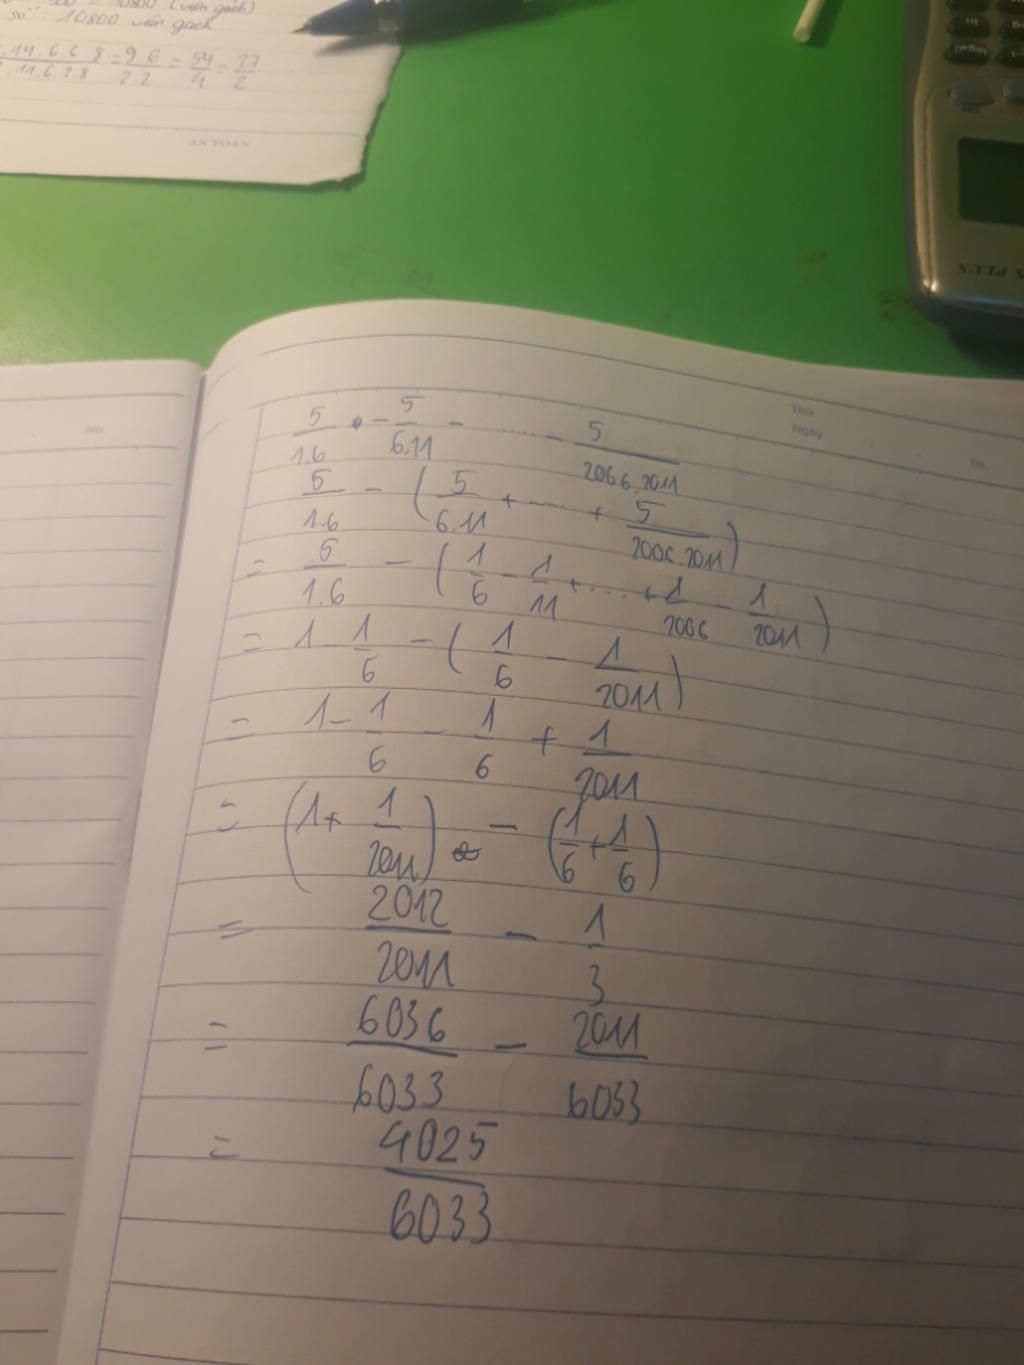 10800 (viên gạch)
số: 10800 viên gạch
.14.6.6 8 / .11.6.2.8 = 9 6 / 2.2 = 54/4 = 27/2
AN TOAN
log
ln
ON
S PLUS
Thứ
Ngày
No.
No.
5/1.6 - 5/6.11 - ..... - 5/2066.2011
5/1.6 - (5/6.11 + ..... + 5/2006.2011)
= 5/1.6 - (1/6 - 1/11 + .... + 1/2006 - 1/2011)
= 1 - 1/6 - (1/6 - 1/2011)
= 1 - 1/6 - 1/6 + 1/2011
= (1 + 1/2011) - (1/6 + 1/6)
= 2012/2011 - 1/3
= 6036/6033 - 2011/6033
= 4025/6033